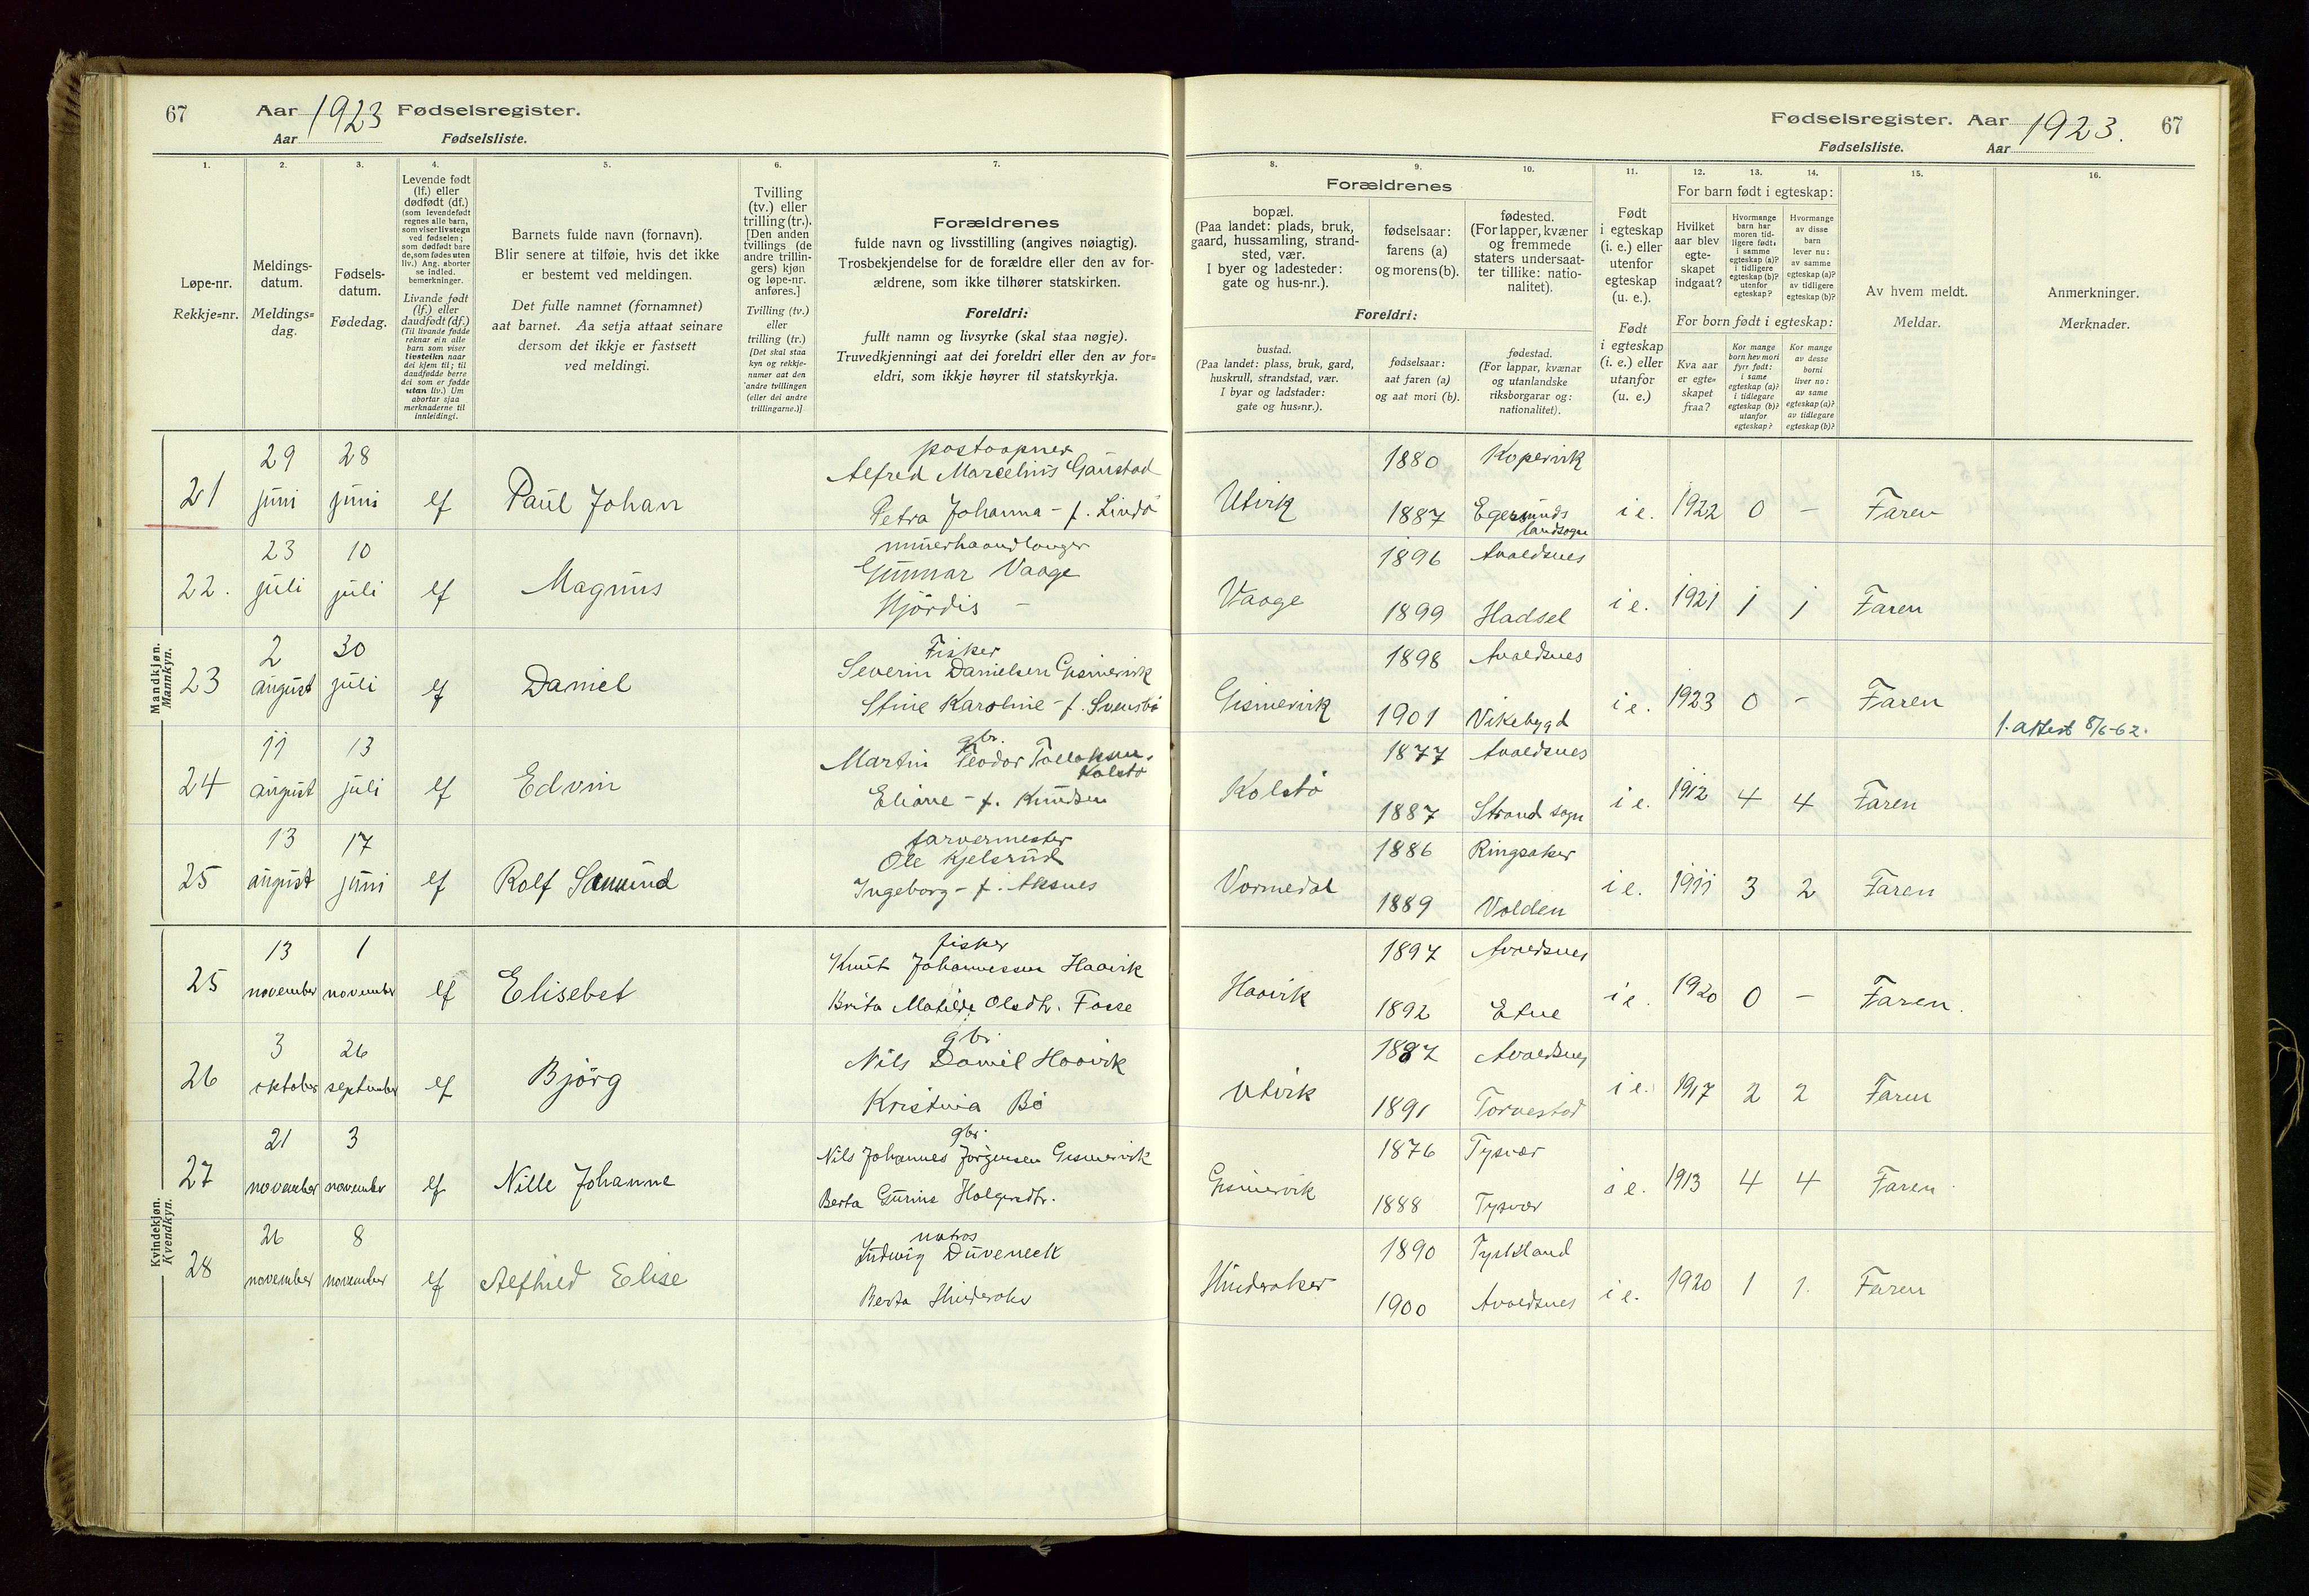 67
Aar 1923 Fødselsregister.
Aar Fødselsliste.
1.
2.
3.
4.
5.
6.
7.
Løpe-nr.
Rekkje=nr.
Meldings-
datum.
Meldings=
dag.
Fødsels-
datum.
Fødedag.
Levende født
(lf.) eller
dødfødt (df.)
(som levendefødt
regnes alle barn,
som viser livstegn
ved fødselen;
som dødfødt bare
de, som fødes uten
liv.) Ang. aborter
se indled.
bemerkninger.
Livande født
(lf.) eller
daudfødt (df.)
(Til livande fødde
reknar ein alle
barn som viser
livsteikn naar
dei kjem til; til
daudfødde berre
dei som er fødde
utan liv.) Um
abortar sjaa
merknaderne til
innleidingi.
Barnets fulde navn (fornavn).
Blir senere at tilføie, hvis det ikke
er bestemt ved meldingen.
Det fulle namnet (fornamnet)
aat barnet. Aa setja attaat seinare
dersom det ikkje er fastsett
ved meldingi.
Tvilling
(tv.) eller
trilling (tr.).
[Den anden
tvillings (de
andre trillin-
gers) kjøn
og løpe-nr.
anføres.]
Tvilling (tv.)
eller
trilling (tr.)
[Det skal staa
kyn og rekkje-
numer aat den
andre tvillingen
(eller dei andre
trillingarne.)]
Forældrenes
fulde navn og livsstilling (angives nøiagtig).
Trosbekjendelse for de forældre eller den av for-
ældrene, som ikke tilhører statskirken.
Foreldri:
fullt namn og livsyrke (skal staa nøgje).
Truvedkjenningi aat dei foreldri eller den av for=
eldri, som ikkje høyrer til statskyrkja.
Mandkjøn.
Mannkyn.
21
29
juni
28
juni
lf
Paul Johan
postaapner
Alfred Marcelius Gaustad
Petra Johanna - f. Lindö
22.
23
juli
10
juli
lf
Magnus
murerhaandlanger
Gunnar Vaage
Hjördis -
23
2
august
30
juli
lf
Daniel
Fisker
Severin Danielsen Gismervik
Stine Karoline - f. Svensbö
24
11
august
13
juli
lf
Edvin
gbr.
Martin Teodor Tollaksen
Kolstø
Eliane - f. Knudsen
25
13
august
17
juni
lf
Rolf Samund
farvermester
Ole Kjelsrud
Ingeborg - f. Aksnes
Kvindekjøn.
Kvendkyn.
25
13
november
1
november
lf
Elisebet
fisker
Knut Johannessen Haavik
Brita Matilde Olsdtr. Fosse
26
3
oktober
26
september
lf
Björg
gbr.
Nils Daniel Haavik
Kristina Bö
27
21
november
3
november
lf
Nille Johanne
gbr.
Nils Johannes Jörgensen Gismervik
Berta Gurine Holgersdtr.
28
26
november
8
november
lf
Alfhild Elise
matros
Ludwig Duveneck
Berta Hinderaker
Fødselsregister. Aar 1923. 67
Fødselsliste. Aar
8.
9.
10.
11.
12.
13.
14.
15.
16.
Forældrenes
bopæl.
(Paa landet: plads, bruk,
gaard, hussamling, strand-
sted, vær.
I byer og ladesteder:
gate og hus-nr.).
fødselsaar:
farens (a)
og morens (b).
fødested.
(For lapper, kvæner
og fremmede
staters undersaat-
ter tillike: natio-
nalitet).
Foreldri:
bustad.
(Paa landet: plass, bruk, gard,
huskrull, strandstad, vær.
I byar og ladstader:
gate og hus=nr.).
fødselsaar:
aat faren (a)
og aat mori (b).
fødestad.
(For lappar, kvænar
og utanlandske
riksborgarar og:
nationalitet).
Født
i egteskap
(i. e.) eller
utenfor
egteskap
(u. e.).
Født
i egteskap
(i. e.) eller
utanfor
(u. e.)
For barn født i egteskap:
Hvilket
aar blev
egte-
skapet
indgaat?
Hvormange
barn har
moren tid-
ligere født:
i samme
egteskap (a)?
i tidligere
egteskap (b)?
utenfor
egteskap?
Hvormange
av disse
barn
lever nu:
av samme
egteskap (a)?
av tidligere
egteskap (b)?
For born født i egteskap:
Kva aar
er egte=
skapet
fraa?
Kor mange
born hev mori
fyrr født:
i same
egteskap (a)?
i tidlegare
egteskap (b)?
utanfor
egteskap?
Kor mange
av desse
borni
liver no:
av same
egteskap (a)?
av tidlegare
egteskap (b)?
Av hvem meldt.
Meldar.
Anmerkninger.
Merknader.
Utvik
1880
Kopervik
1887
Egersunds
landsogn
i e.
1922
0
-
Faren
Vaage
1896
Avaldsnes
1899
Hadsel
i e.
1921
1
1
Faren
Gismervik
1898
Avaldsnes
1901
Vikebygd
i e.
1923
0
-
Faren
f. attest 8/6-62.
Kolstö
1877
Avaldsnes
1887
Strand sogn
i e.
1912
4
4
Faren
Vormedal
1886
Ringsaker
1889
Volden
i e.
1911
3
2
Faren
Haavik
1897
Avaldsnes
1892
Etne
i e.
1920
0
-
Faren.
Utvik
1887
Avaldsnes
1891
Torvestad
i e.
1917
2
2
Faren
Gismervik
1876
Tysvær
1888
Tysvær
i e.
1913
4
4
Faren
Hinderaker
1890
Tyskland
1900
Avaldsnes
i e.
1920
1
1.
Faren